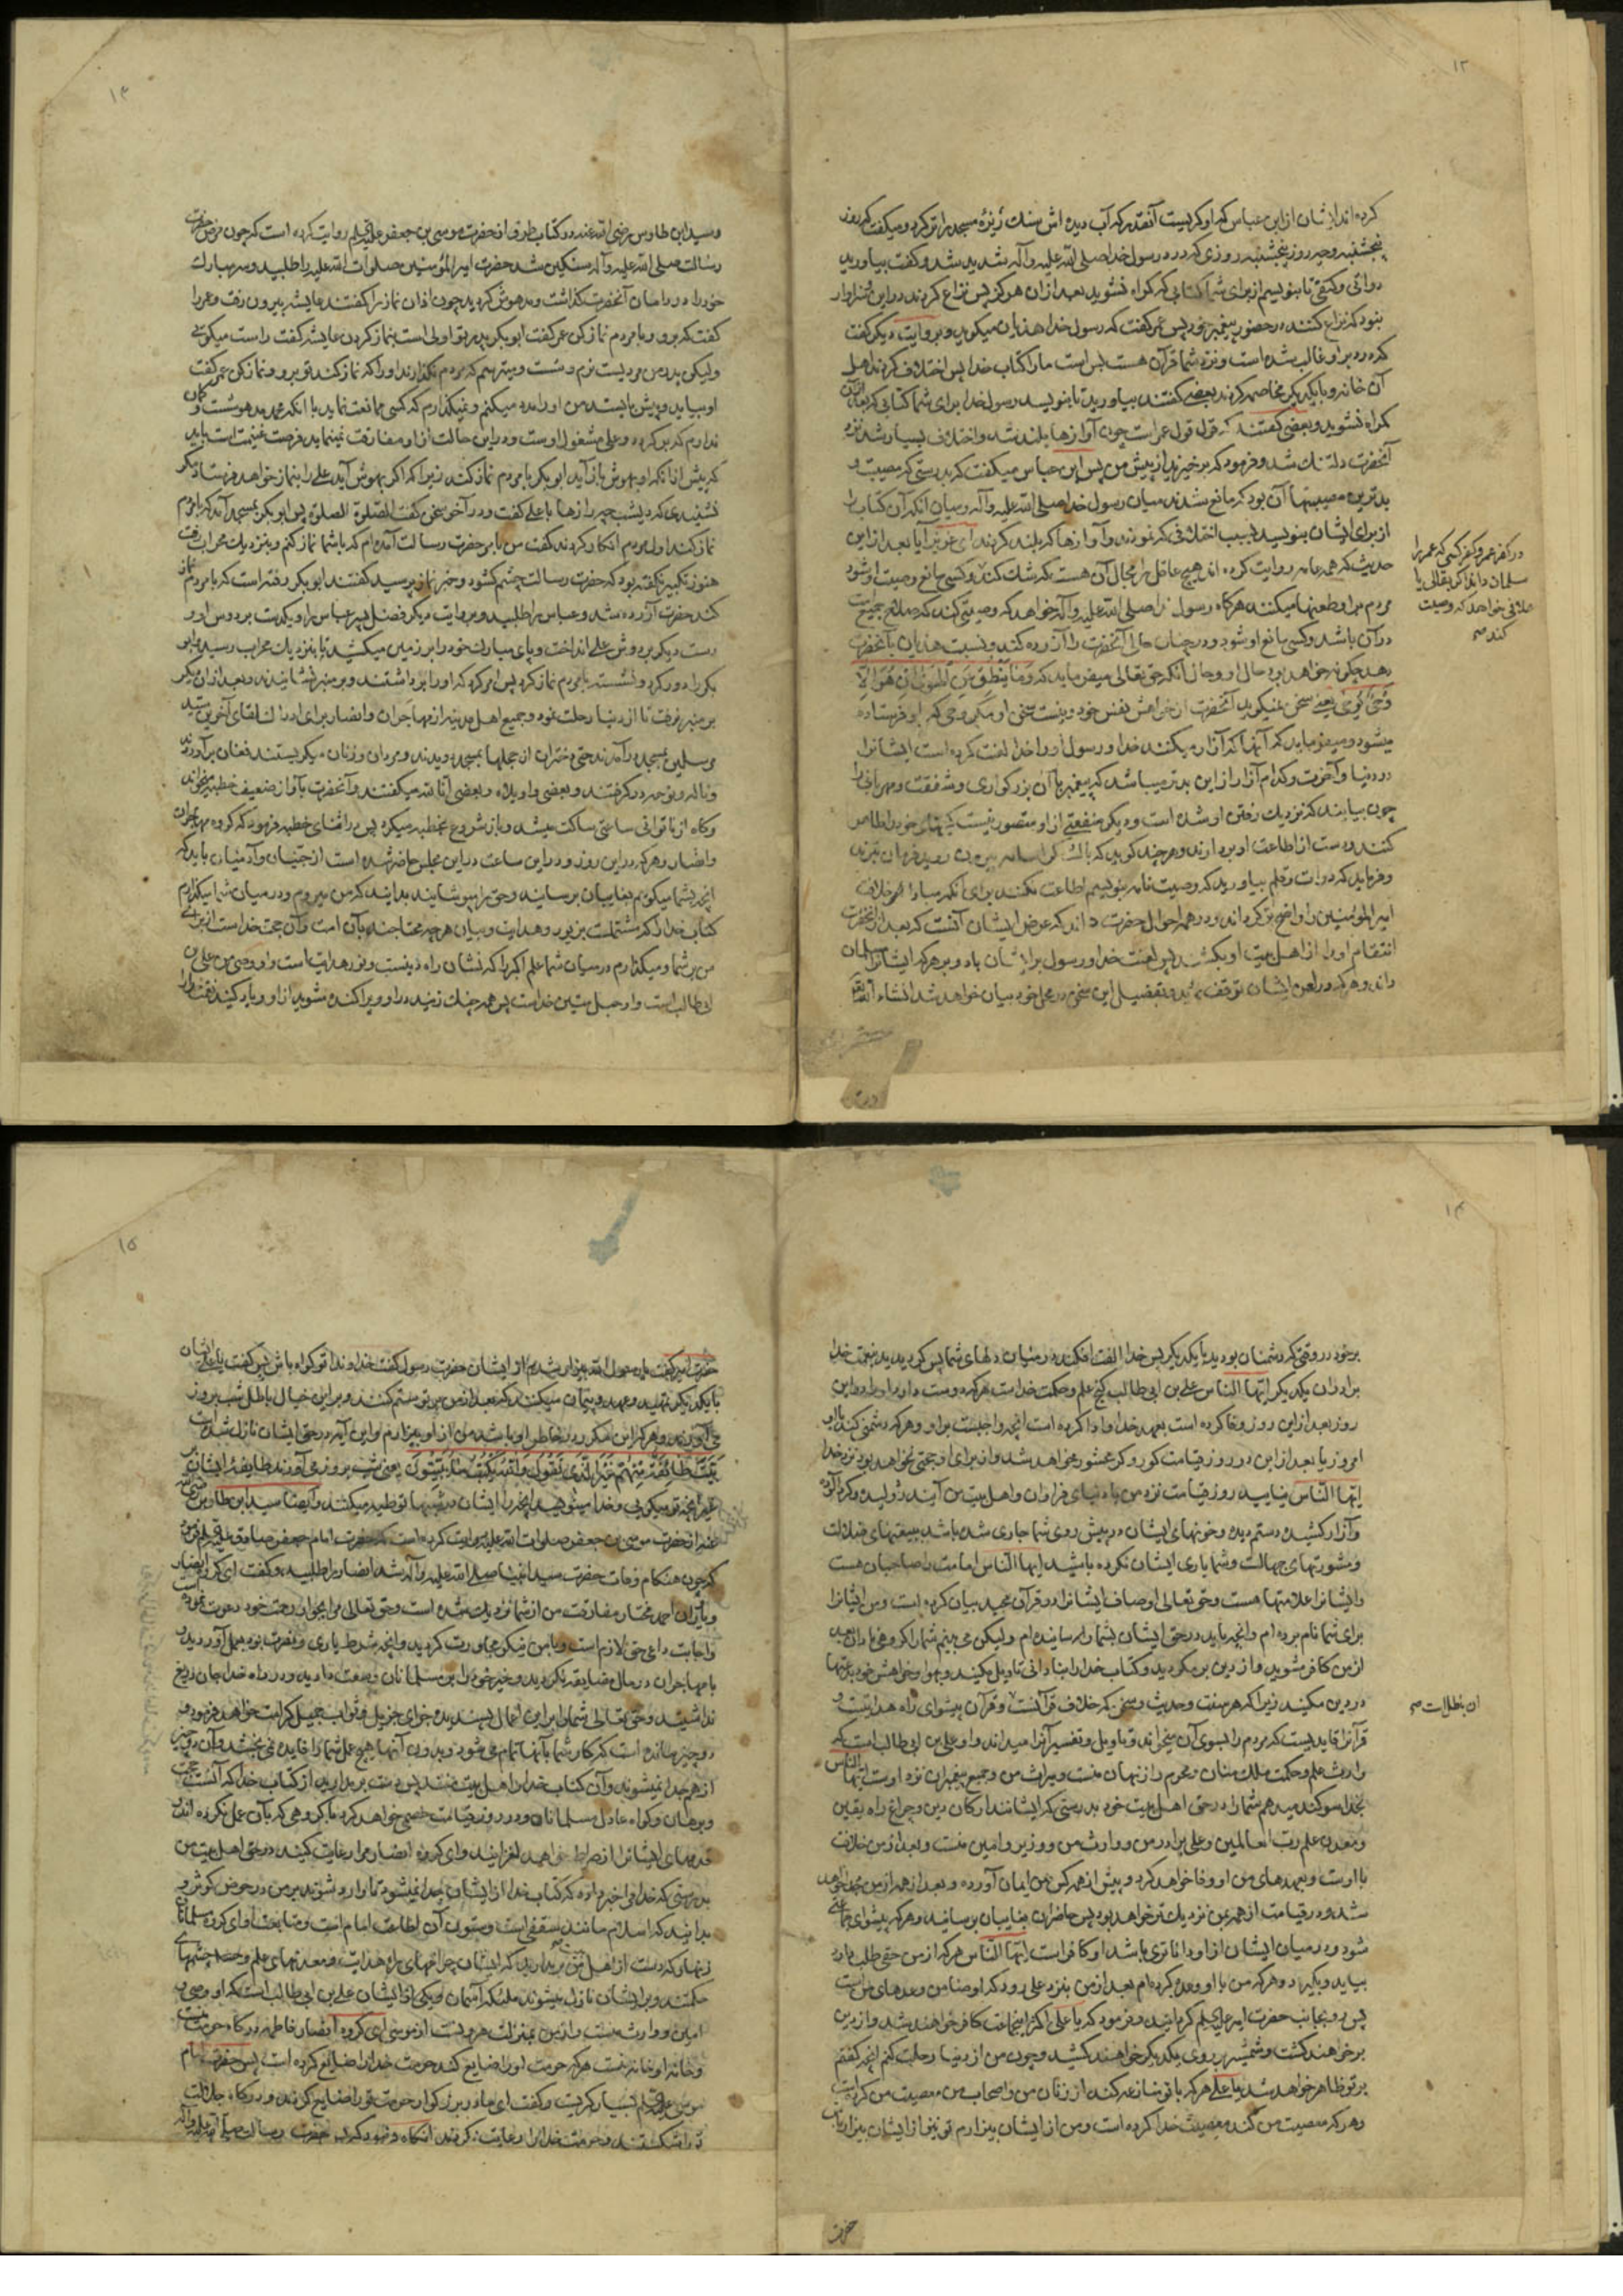 ۱۳
کرده‌اند ایشان از ابن عباس که او کریست آنقدر که آب دیده اش سنك ریزهٔ مسجد را تر کرد و میگفت که روز
پنجشنبه و چه روز پنجشنبه روزی که درد رسول خدا صلی الله علیه و آله شدید شد و گفت بیاورید
دواتی و کتفی تا بنویسم از برای شما کتابی که کمراه نشوید بعد از ان هرکز پس نزاع کردند در این و سزاوار
نبود که نزاع کنند در حضور پیغمبر خود پس عمر گفت که رسول خدا هذیان میکوید و بروایت دیکر گفت
که درد بر او غالب شده است و نزد شما قرآن هست بس است ما را کتاب خدا پس اختلاف کردند اهل
آن خانه و با یکدیکر مخاصمه کردند بعضی گفتند بیاورید تا بنویسد رسول خدا برای شما کتابی که بعد از آن
کمراه نشوید و بعضی گفتند که قول قول عمر است چون آوازها بلند شد و اختلاف بسیار شد نزد
آنحضرت دلتنك شد و فرمود که برخیزید از پیش من پس ابن عباس میگفت که بدرستی که مصیبت و
بدترین مصیبتها آن بود که مانع شدند میان رسول خدا صلی الله علیه و آله و میان انکه آن کتاب را
از برای ایشان بنویسد بسبب اختلافی که نمودند و آوازها که بلند کردند ای عزیز آیا بعد از این
حدیث که همه عامه روایت کرده اند هیچ عاقل را مجال آن هست که شك کند و کسی مانع وصیت او شود
مردم او را طعنها میکنند هرکاه رسول خدا صلی الله علیه و آله خواهد که وصیتی کند که صلاح جمیع امت
در آن باشد و کسی مانع او شود و در چنان حالی آنحضرت را آزرده کند و نسبت هذیان بآنحضرت
دهد چکونه خواهد بود حال او و حال آنکه حق تعالی میفرماید که وَمَا یَنْطِقُ عَنِ الْهَوٰی اِنْ هُوَ اِلَّا
وَحْیٌ یُوحٰی یعنی سخن نمیکوید آنحضرت از خواهش نفس خود و نیست سخن او مکر وحی که باو فرستاده
میشود و میفرماید که آنها که آزار میکنند خدا و رسول او را خدا لعنت کرده است ایشانرا
در دنیا و آخرت و کدام آزار از این بدتر میباشد که پیغمبر با آن بزرکواری و شفقت و مهربانی را
چون بیابند که نزدیك رفتن او شده است و دیکر منفعتی از او متصور نیست کینهای خود را ظاهر
کنند و دست از اطاعت او بردارند و هرچند کوید که با لشکر اسامه بیرون روید فرمان نبرند
و فرماید که دوات و قلم بیاورید که وصیت نامه بنویسم اطاعت نکنند برای انکه مبادا امر خلافت
امیر المؤمنین را واضح تر کرداند و در همه احوال حضرت داند که غرض ایشان آنست که بعد از آنحضرت
انتقام او را از اهل بیت او بکشند پس لعنت خدا و رسول بر ایشان باد و بر هرکه ایشانرا مسلمان
داند و هرکه در لعن ایشان توقف نماید و تفضیل این سخن در محل خود بیان خواهد شد انشاء الله تعالی
در کفر عمر و کفر کسی که عمر را
مسلمان داند اکر بقالی یا
علافی خواهد که وصیت
کند صح
۱۴
و سید ابن طاوس رضی الله عنه در کتاب طرف از حضرت موسی بن جعفر علیه السلم روایت کرده است که چون مرض حضرت
رسالت صلی الله علیه و آله سنکین شد حضرت امیر المؤمنین صلوات الله علیه را طلبید و سر مبارك
خود را در دامان آنحضرت کذاشت و مدهوش کردید چون اذان نماز را گفتند عایشه بیرون رفت و عمر را
گفت که برو و با مردم نماز کن عمر گفت ابو بکر پدر تو اولی است بنماز کردن عایشه گفت راست میکوئی
ولیکن پدر من مردیست نرم و سست و میترسم که مردم نکذارند او را که نماز کند تو برو و نماز کن عمر گفت
او بیاید و پیش بایستد من او را مدد میکنم و نمیکذارم که کسی ممانعت نماید با انکه محمد مدهوشست و کمان
ندارم که بر کردد و علی مشغول اوست و در این حالت از او مفارقت نمینماید فرصت غنیمت است باید
که پیش از انکه او بهوش باز آید ابو بکر با مردم نماز کند زیرا که اکر بهوش آید علی را بنماز خواهد فرستاد مکر
نشنیدی که دیشب چه رازها با علی گفت و در آخر سخن گفت الصلوة الصلوة پس ابو بکر بمسجد آمد که با مردم
نماز کند اول مردم انکار کردند گفت من بامر حضرت رسالت آمده ام که با شما نماز کنم و بنزدیك محراب رفت
هنوز تکبیر نگفته بود که حضرت رسالت چشم کشود و خبر نماز پرسید گفتند ابو بکر رفته است که با مردم نماز
کند حضرت آزرده شد و عباس را طلبید و بروایت دیکر فضل پسر عباس را و یکدست بر دوش او و
دست دیکر بر دوش علی انداخت و پای مبارك خود را بر زمین میکشید تا بنزدیك محراب رسید و ابو
بکر را دور کرد و نشسته با مردم نماز کرد پس امر کرد که او را برداشتند و بر منبر نشانیدند و بعد از ان دیکر
بر منبر نرفت تا از دنیا رحلت نمود و جمیع اهل مدینه از مهاجران و انصار برای ادراك لقای آخرین سید
مرسلین بمسجد در آمدند حتی دختران از حجلها بمسجد دویدند و مردان و زنان میکریستند فغان بر آوردند
و ناله و نوحه در کرفتند و بعضی وا ویلاه و بعضی انا لله میگفتند و آنحضرت بآواز ضعیف خطبه میخواند
و کاه از ناتوانی ساعتی ساکت میشد و باز شروع بخطبه میکرد پس در اثنای خطبه فرمود که کروه مهاجران
و انصار و هرکه در این روز و در این ساعت در این مجلس حاضر شده است از جنیان و آدمیان باید که
انچه بشما میکویم بغایبان برسانید و حق را نپوشانید بدانید که من میروم و در میان شما میکذارم
کتاب خدا را که مشتملست بر نور و هدایت و بیان هرچه محتاجند بآن امت و آن حجت خداست از برای
من بر شما و میکذارم در میان شما علم اکبر را که نشان راه دینست و نور هدایت است و او وصی من علی بن
ابی طالب است و او حبل متین خداست پس همه چنك زنید در او و پراکنده مشوید از او و یاد کنید نعمت خدا را
۱۴
بر خود در وقتی که دشمنان بودید با یکدیکر پس خدا الفت افکند در میان دلهای شما پس کردیدید بنعمت خدا
برادران یکدیکر ایها الناس علی بن ابی طالب کنج علم و حکمت خداست هرکه دوست دارد او را در این
روز بعد از این روز وفا کرده است بعهد خدا و ادا کرده است انچه واجبست بر او و هرکه دشمنی کند با او
امروز یا بعد از این در روز قیامت کور و کر محشور خواهد شد و از برای او حجتی نخواهد بود نزد خدا
ایها الناس نیایید روز قیامت نزد من با دنیای فراوان و اهل بیت من آیند ژولیده و کرد آلوده
و آزار کشیده و ستم دیده و خونهای ایشان در پیش روی شما جاری شده باشد ببیعتهای ضلالت
و مشورتهای جهالت و شما یاری ایشان نکرده باشید ایها الناس امامت را صاحبان هست
و ایشانرا علامتها هست و حق تعالی اوصاف ایشانرا در قرآن مجید بیان کرده است و من ایشانرا
برای شما نام برده ام و انچه باید در حق ایشان بشما رسانیده ام ولیکن می بینم شما را کروهی نادان بعد
از من کافر مشوید و از دین بر مکردید و کتاب خدا را بنادانی تاویل مکنید و بهوا و خواهش خود بدعتها
در دین مکنید زیرا که هر سنت و حدیث و سخنی که خلاف قرآنست و قرآن پیشوای راه هدایتست و
قرآنرا قایدیست که مردم را بسوی آن میخواند و تاویل و تفسیر آنرا میداند و او علی بن ابی طالب است که
وارث علم و حکمت ملك منان و محرم راز نهان منست و میراث من و جمیع پیغمبران نزد اوست ایها الناس
بخدا سوکند میدهم شما را در حق اهل بیت خود بدرستی که ایشانند ارکان دین و چراغ راه یقین
و معدن علم رب العالمین و علی برادر من و وارث من و وزیر و امین منست و بعد از من خلافت
با اوست و بعهدهای من او وفا خواهد کرد و پیش از همه کس بمن ایمان آورده و بعد از همه از من جدا خواهد
شد و در قیامت از همه بمن نزدیك تر خواهد بود پس حاضران بغایبان برسانید و هرکه پیشوای جماعتی
شود و در میان ایشان از او داناتری باشد او کافر است ایها الناس هرکه از من حقی طلب دارد
بیاید و بکیرد و هرکه من با او وعده کرده ام بعد از من بنزد علی رود که او ضامن وعدهای من است
پس رو بجانب حضرت امیر علیه السلم کردانید و فرمود که یا علی اکثر اینجماعت کافر خواهند شد و از دین
بر خواهند کشت و شمشیر بر روی یکدیکر خواهند کشید و چون من از دنیا رحلت کنم انچه گفتم
بر تو ظاهر خواهد شد یا علی هرکه با تو منازعه کند از زنان من و اصحاب من معصیت من کرده است
و هرکه معصیت من کند معصیت خدا کرده است و من از ایشان بیزارم تو نیز از ایشان بیزار باش
ان بطلالت صح
حضرت
۱۵
حضرت امیر گفت یا رسول الله بیزار شدم از ایشان حضرت رسول گفت خداوندا تو کواه باش پس گفت یا علی ایشان
با یکدیکر نشینند و عهد و پیمان میکنند که بعد از من بر تو ستم کنند و بر این خیال باطل شب بروز
می آورند و هرکه این مکر در خاطر او باشد من از او بیزارم و این آیه در حق ایشان نازل شده است
بَیَّتَ طَائِفَةٌ مِنْهُمْ غَیْرَ الَّذِی تَقُولُ وَاللّٰهُ یَکْتُبُ مَا یُبَیِّتُونَ یعنی شب بروز می آورند طایفهٔ ایشان بر
غیر انچه تو میکوئی و خدا مینویسد انچه را ایشان در شبها توطئه میکنند و ایضا سید ابن طاوس رضی الله
عنه از حضرت موسی بن جعفر صلوات الله علیه روایت کرده است که حضرت امام جعفر صادق علیه السلم فرمود
که چون هنکام وفات حضرت سید انبیا صلی الله علیه و آله شد انصار را طلبید و گفت ای کروه انصار
و یاران احمد مختار مفارقت من از شما نزدیك شده است و حق تعالی مرا بجوار رحمت خود دعوت نموده است
و اجابت داعی حق لازم است و با من نیکو مجاورت کردید و انچه شرط یاری و نصرت بود بعمل آوردید و
با مهاجران در مال مضایقه نکردید و خیر خود را بر مسلمانان وسعت دادید و در راه خدا جان دریغ
نداشتید و حق تعالی شما را بر این اعمال پسندیده جزای جزیل و ثواب جمیل کرامت خواهد فرمود و
دو چیز مانده است که کار شما بآنها تمام می شود و بدون آنها هیچ عمل شما را فایده نمی بخشد و آن دو چیز
از هم جدا نمیشوند و آن کتاب خدا و اهل بیت منند پس دست بر مدارید از کتاب خدا که آنست حجت
و برهان و کواه عادل مسلمانان و در روز قیامت خصمی خواهد کرد با کروهی که بآن عمل نکرده اند و
قدمهای ایشانرا از صراط خواهد لغزانید و ای کروه انصار مرا رعایت کنید در حق اهل بیت من
بدرستی که خدا مرا خبر داده که کتاب خدا از ایشان جدا نمیشود تا وارد شوند بر من در حوض کوثر و
بدانید که اسلام مانند سقفی است و ستون آن اطاعت امام است و متابعت او ای کروه مسلمانان
زنهار که دست از اهل بیت من بر مدارید که ایشان چراغهای راه هدایت و معدنهای علم و چشمهای
حکمتند و بر ایشان نازل میشوند ملئکه آسمان و یکی از ایشان علی بن ابی طالب است که او وصی و
امین و وارث منست و از من بمنزلت هرونست از موسی ای کروه انصار فاطمه درکاه حرمت منست
و خانهٔ او خانهٔ منست هرکه حرمت او را ضایع کند حرمت خدا را ضایع کرده است پس حضرت امام
موسی علیه السلم بسیار کریست و گفت ای مادر بزرکوار حرمت تو را ضایع کردند و درکاه جلالت
تو را شکستند و حرمت خدا را رعایت نکردند آنکاه فرمود که پس حضرت رسالت صلی الله علیه و آله